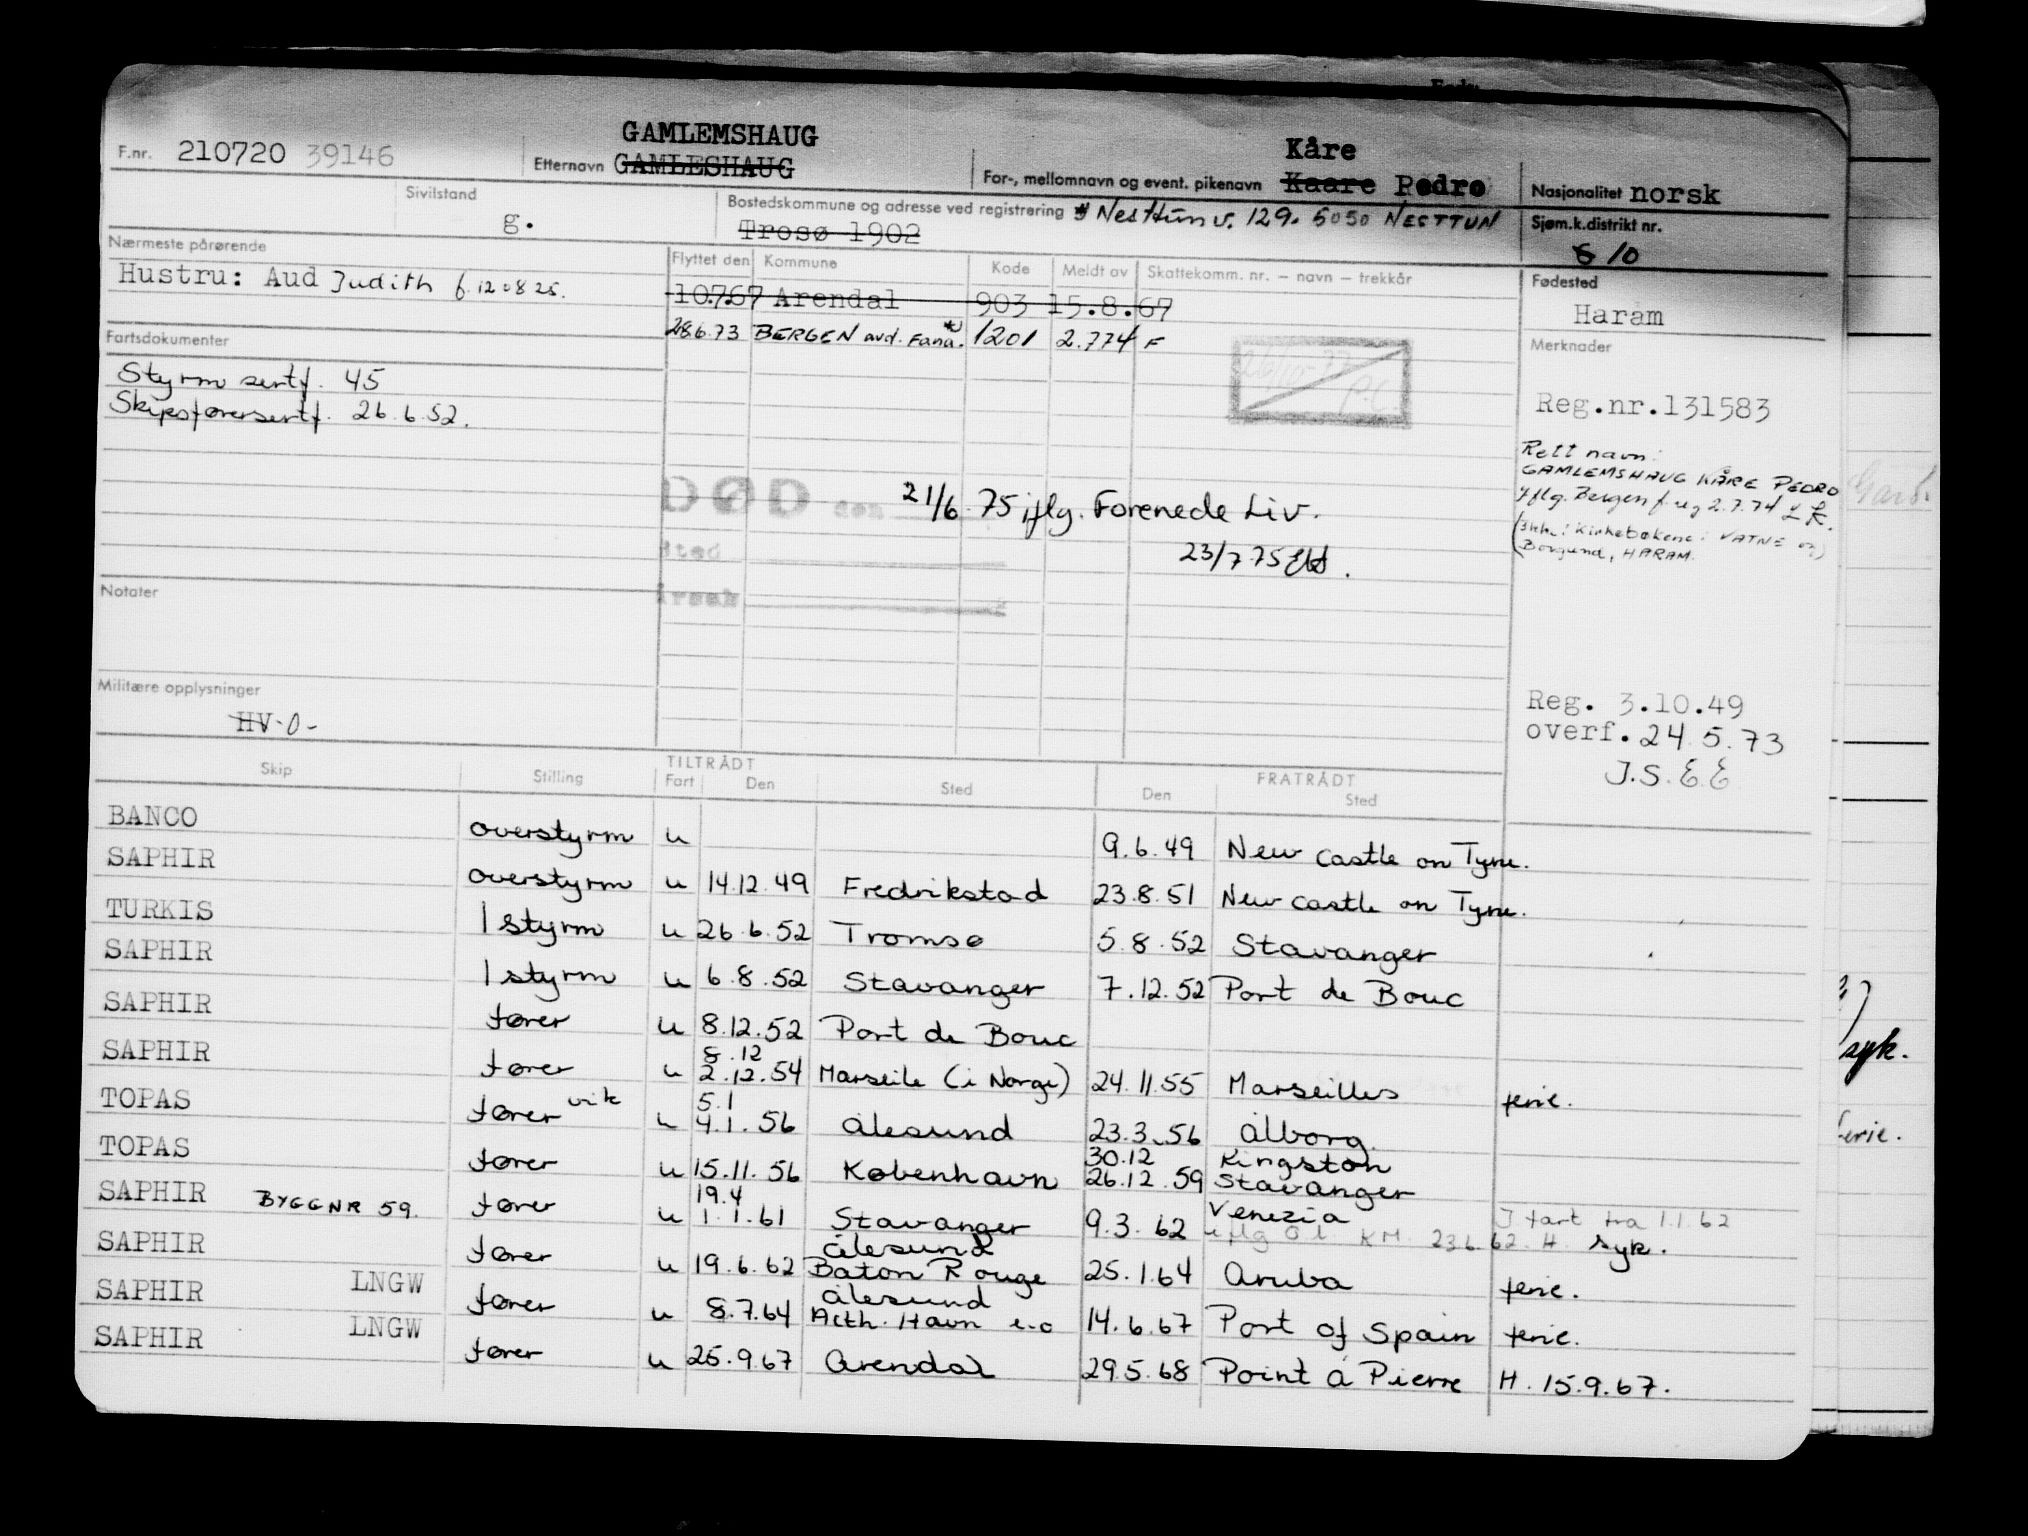 GAMLEMSHAUG
Kåre
F.nr. 210720 39146 Etternavn GAMLESHAUG For-, mellomnavn og event. pikenavn Kaare Pedro Nasjonalitet norsk
Sivilstand g. Bostedskommune og adresse ved registrering Nesttunv. 129. 5050 NESTTUN Sjøm.k.distrikt nr.
Trosø 1902
10
Nærmeste pårørende Flyttet den Kommune Kode Meldt av Skattekomm. nr. – navn – trekkår Fødested
Hustru: Aud Judith f. 120825.
10767 Arendal 903 15.8.67 Haram
28673 BERGEN avd. Fana. 1201 2.774 F
Fartsdokumenter Merknader
Styrm sertf. 45
Skipsførersertf. 26.6.52.
Reg.nr.131583
Rett navn:
GAMLEMSHAUG KÅRE PEDRO
iflg. Bergen f.reg 2.7.74
Kirkebøkene i VATNE og
Borgund, HARAM.
DØD den 21/6 75 iflg. Forenede Liv.
Sted 23/7 75
Årsak
Notater
Militære opplysninger
HV-0-
Reg. 3.10.49
overf. 24.5.73
J.S. E E
Skip Stilling TILTRÅDT Fart Den Sted FRATRÅDT Den Sted
BANCO overstyrm u 9.6.49 New castle on Tyne.
SAPHIR overstyrm u 14.12.49 Fredrikstad 23.8.51 New castle on Tyne.
TURKIS 1 styrm u 26.6.52 Tromsø 5.8.52 Stavanger
SAPHIR 1 styrm u 6.8.52 Stavanger 7.12.52 Port de Bouc
SAPHIR fører u 8.12.52 Port de Bouc
8.12
SAPHIR fører u 2.12.54 Marseile (i Norge) 24.11.55 Marseilles ferie.
5.1
TOPAS fører vik u 4.1.56 Ålesund 23.3.56 Ålborg.
30.12 Kingston
TOPAS fører u 15.11.56 København 26.12.59 Stavanger
19.4 Venezia
SAPHIR BYGGNR 59. fører u 1.1.61 Stavanger 9.3.62 I fart fra 1.1.62
KM. 23.6.62. H. syk.
Ålesund
SAPHIR fører u 19.6.62 Baton Rouge 25.1.64 Aruba ferie.
Ålesund
SAPHIR LNGW fører u 8.7.64 Acth. Havn e.o 14.6.67 Port of Spain ferie.
SAPHIR LNGW fører u 25.9.67 Arendal 29.5.68 Point à Pierre H. 15.9.67.
syk.
ferie.